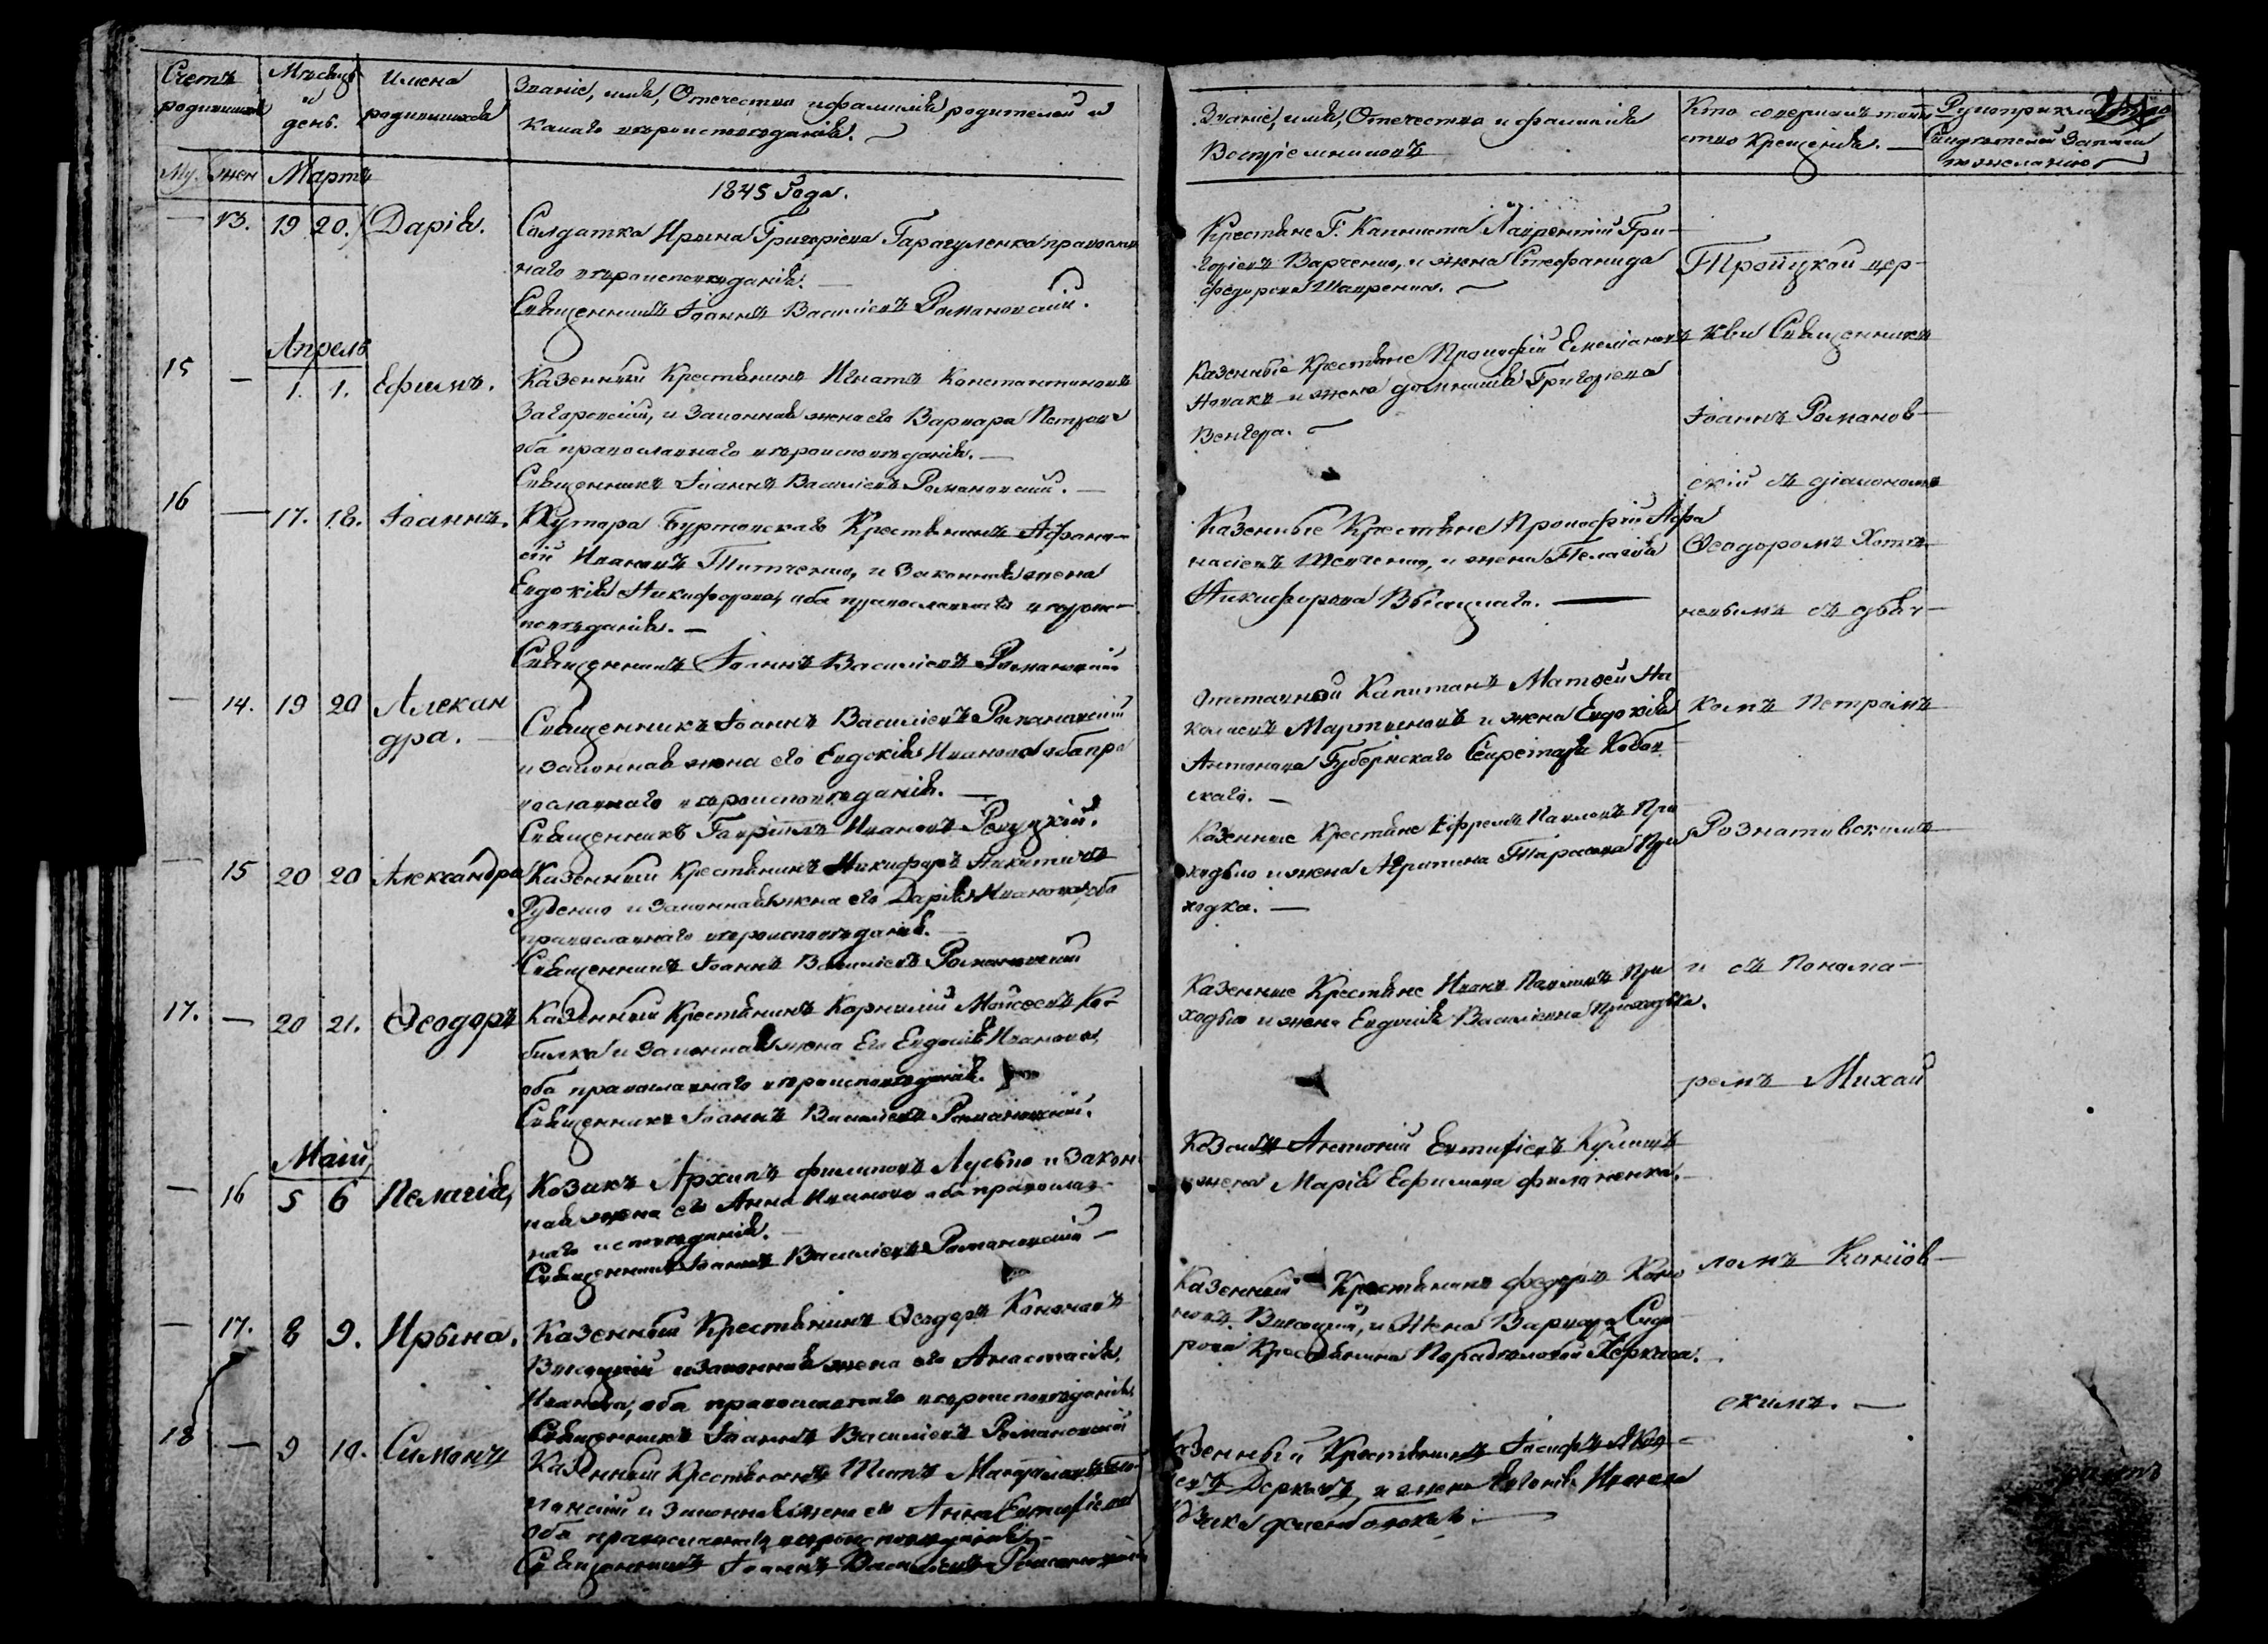 Счетъ родившихся
Мѣсяцъ и день.
Имена родившихся
Званіе, имя, Отечество и фамилія родителей и
какаго вѣроисповѣданія.
Званіе, имя, Отечество и фамилія
Воспріемниковъ
Кто совершалъ таин
ство крещенія.
Рукоприкла
Свидѣтелей записи
по желанію
Му. Жен Мартъ
1845 Года.
— 13. 19 20. Дарія.
Солдатка Ирына Григоріева Гарагуленкова православ
наго вѣроисповѣданія. —
Священникъ Іоаннъ Василіевъ Романовскій.
Крестьяне Г. Капниста Лаврентій Гри-
горіевъ Варченко, и жена Стефанида
Федорова
Апрель
15 — 1. 1. Ефимъ.
Казенный Крестьянинъ Игнатъ Константиновъ
Загоровскій, и Законная жена его Варвара Петрова
оба православнаго вѣроисповѣданія. —
Священникъ Іоаннъ Василіевъ Романовскій. —
Казенные Крестьяне Прокофій Емеліановъ
Новакъ и жена Григоріева
Венгера.
16 — 17. 18. Іоаннъ.
Хутора Буртовскаго Крестьянинъ Афана-
сій Ивановъ Титченко, и Законная жена
Евдокія Никифорова, оба православнаго вѣроис-
повѣданія. —
Священникъ Іоаннъ Василіевъ Романовскій
Казенные Крестьяне Прокофій Афа
насіевъ Шевченко, и жена Пелагія
Никифорова Высоцкаго. —
— 14. 19 20 Алекан
дра. —
Священникъ Іоаннъ Василіевъ Романовскій
и законная жена его Евдокія Иванова оба пра
вославнаго вѣроисповѣданія. —
Священникъ Гавріилъ Ивановъ
Отставной Капитанъ Матвей Ни
колаевъ Мартиновъ и жена Евдокія
Антонова Губернскаго Секретаря Кобы
скаго. —
— 15 20 20 Александра
Казенный Крестьянинъ Никифоръ Никитинъ
Руденко и Законная жена его Дарія Иванова, оба
православнаго вѣроисповѣданія. —
Священникъ Іоаннъ Василіевъ Романовскій
Казенные Крестьяне Ефремъ Павловъ При
ходько и жена Агрипина Тарасова При
ходка. —
17. — 20 21. Ѳеодоръ
Казенный Крестьянинъ Корнилій Мойсеевъ Ко-
билка и Законная жена Его Евдокія Иванова,
оба православнаго вѣроисповѣданія.
Священникъ Іоаннъ Василіевъ Романовскій.
Казенные Крестьяне Иванъ Павловъ При
ходько и жена Евдокія Василіевна Приходька.
Маій,
— 16 5 6 Пелагія,
Козакъ Архипъ Филиповъ Лусько и Закон
ная жена его Анна Иванова оба православ-
наго исповѣданія. —
Священникъ Іоаннъ Василіевъ Романовскій —
Козакъ Антоній Евтифіевъ Кулишъ
и жена Марія Ефимова Филоненка. —
— 17. 8 9. Ирына.
Казенный Крестьянинъ Ѳеодоръ Кононовъ
Высоцкій и законная жена его Анастасія
Иванова, оба православнаго вѣроисповѣданія
Священникъ Іоаннъ Василіевъ Романовскій
Казенный Крестьянинъ Федоръ Коно
новъ Высоцкій, и Жена Варвара Сидо
рова Крестьянина
18 — 9 10. Симонъ
Казенный Крестьянинъ Титъ
и Законная жена его Анна Евтифіева
оба православнаго вѣроисповѣданія —
Священникъ Іоаннъ Василіевъ Романовскій
Казенный Крестьянинъ Іосифъ Яков-
левъ Деркачъ, и жена Евдокія Иванова
Козака
Тройцкой цер-
кви Священникъ
Іоаннъ Романов-
скій съ діакономъ
Ѳеодоромъ Хотя-
невымъ съ дьяч-
комъ Петромъ
Рознатовскимъ
и съ Понома-
ремъ Михай
ломъ Коніов-
скимъ. —